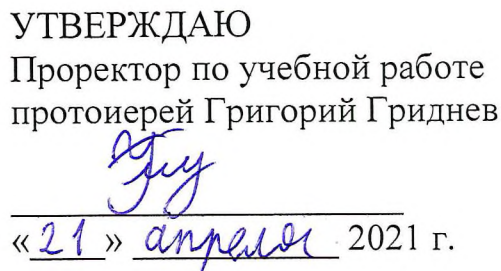 УТВЕРЖДАЮ
Проректор по учебной работе
протоиерей Григорий Гриднев
«21» апреля 2021 г.